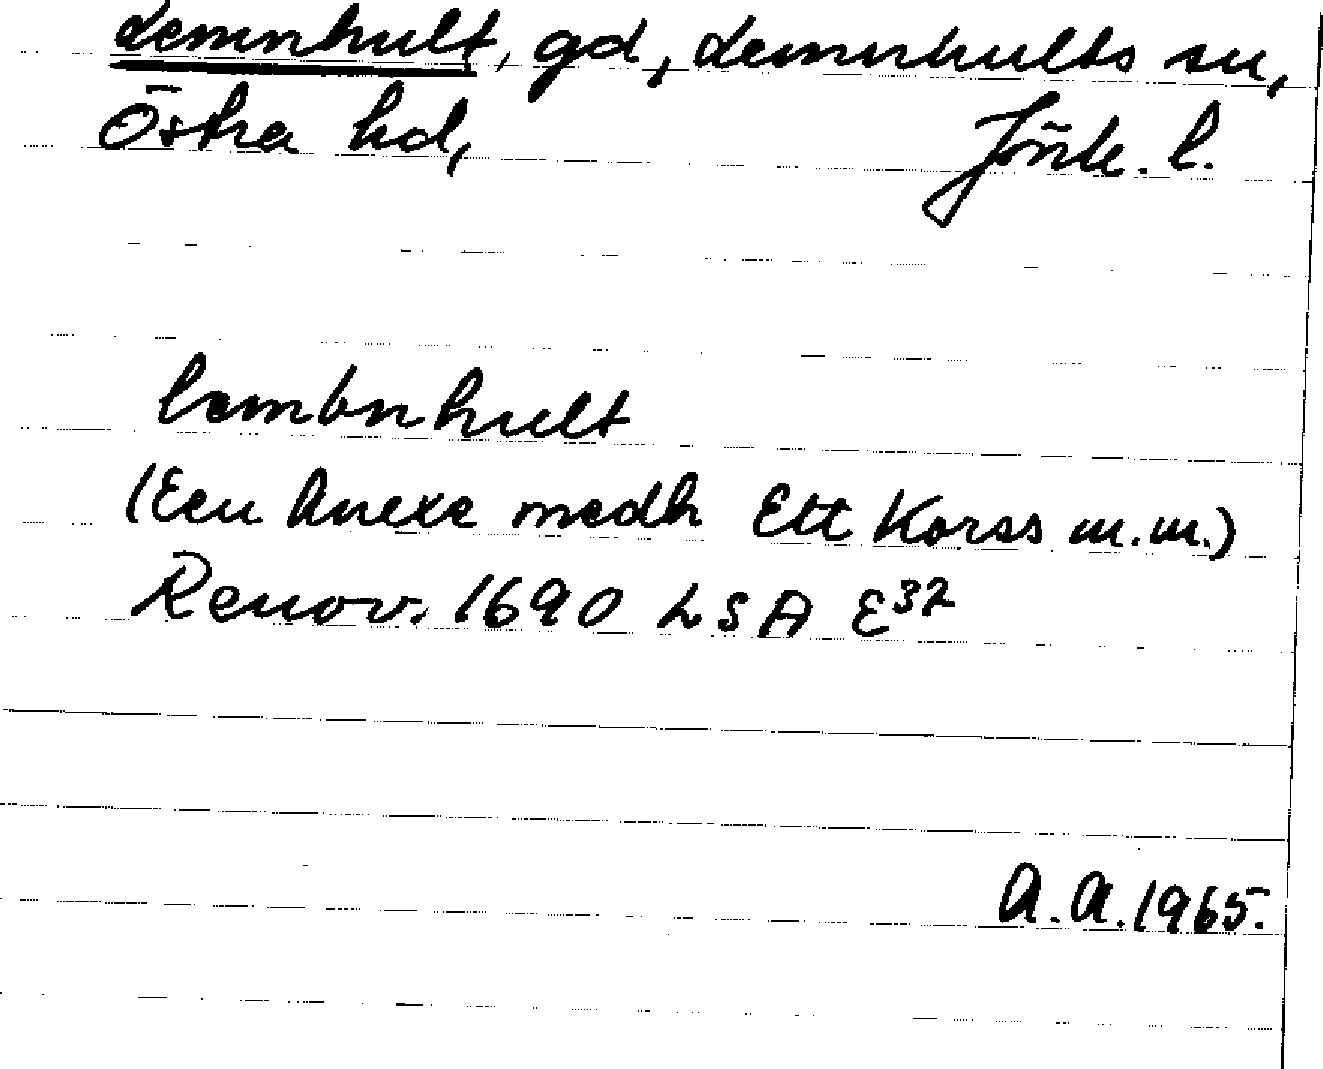 Lemnhult, gd, Lemnhults sn,
Östra hd, Jönk. l.
lembnhult
(Een Anexe medh Ett Korss m.m.)
Renov. 1690 LSA E32
A.A. 1965.